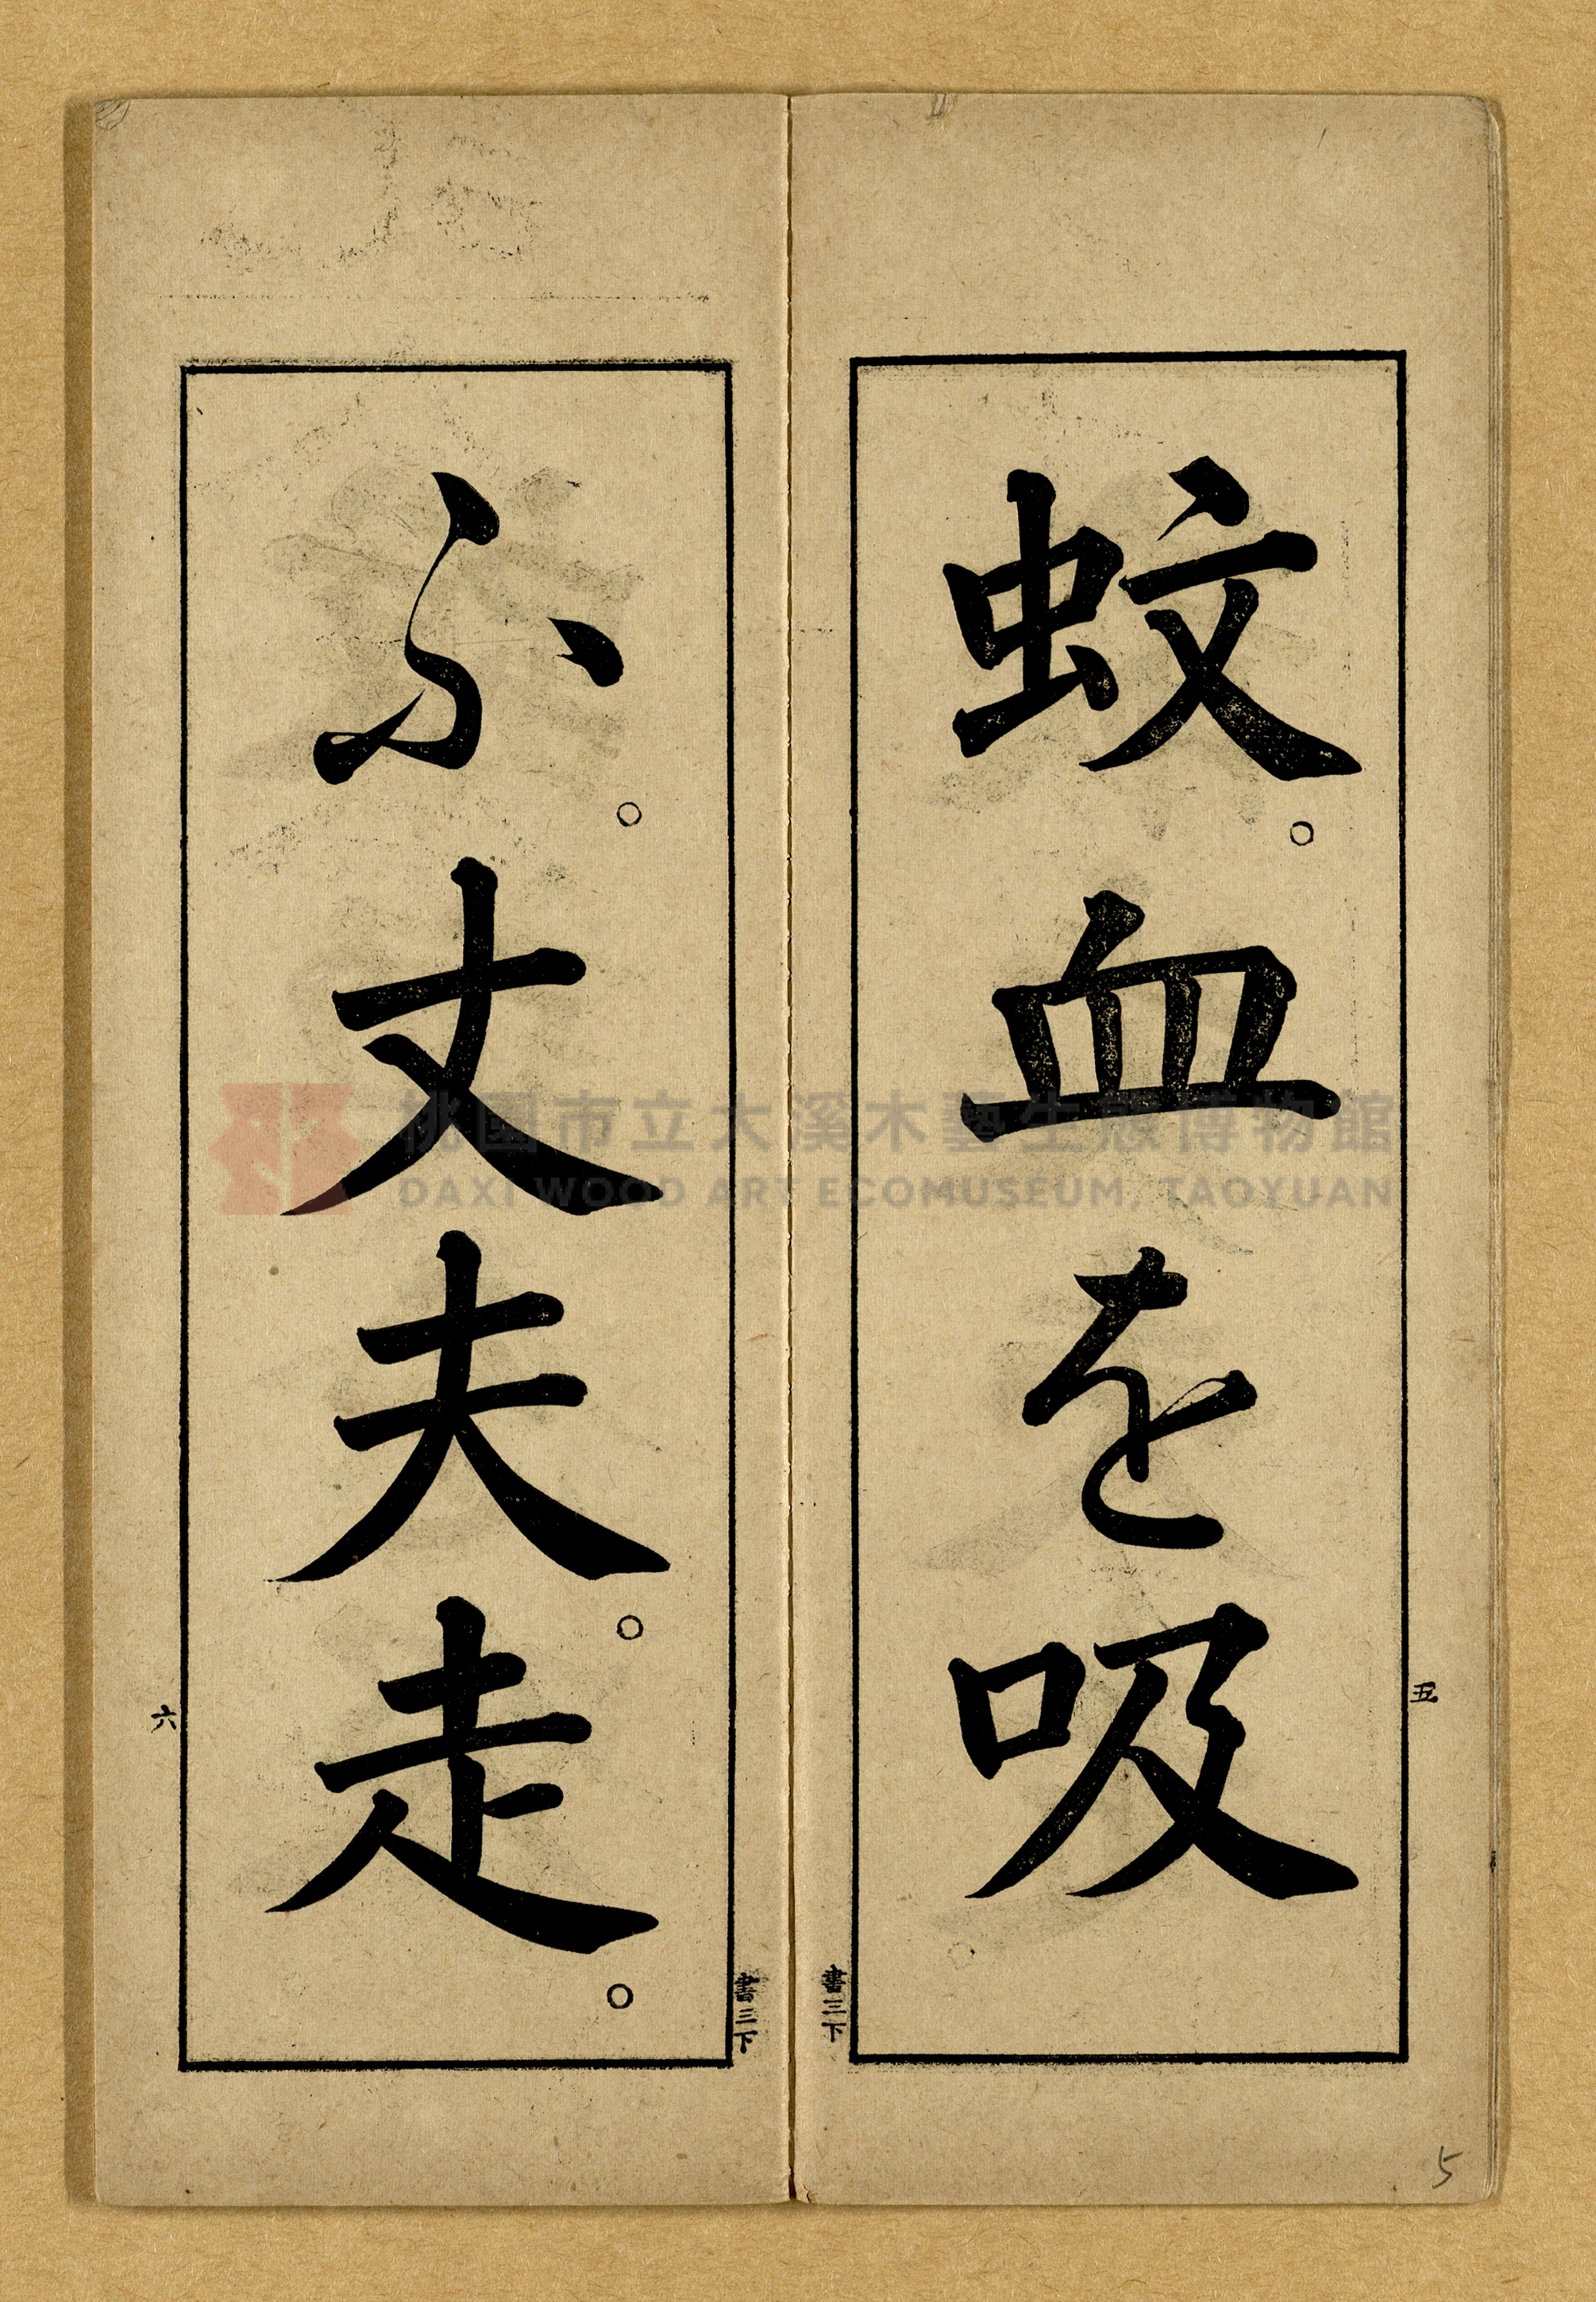 蚊。血を吸
五
書三下
ふ。丈夫。走。
六
書三下
桃園市立大溪木藝生態博物館
DAXI WOOD ART ECOMUSEUM, TAOYUAN
5